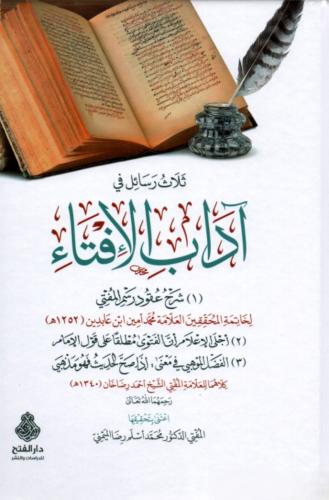 ثلاث رسائل في
آداب الإفتاء
(١) شرح عقود رسم المفتي
لخاتمة المحققين العلامة محمد أمين ابن عابدين (١٢٥٢هـ)
(٢) أجلى الإعلام أن الفتوى مطلقا على قول الإمام
(٣) الفضل الموهبي في معنى: إذا صح الحديث فهو مذهبي
كلاهما للعلامة المفتي الشيخ أحمد رضا خان (١٣٤٠هـ)
رحمهما الله تعالى
اعتنى بتحقيقها
المفتي الدكتور محمد أسلم رضا الميمني
دار الفتح
للدراسات والنشر